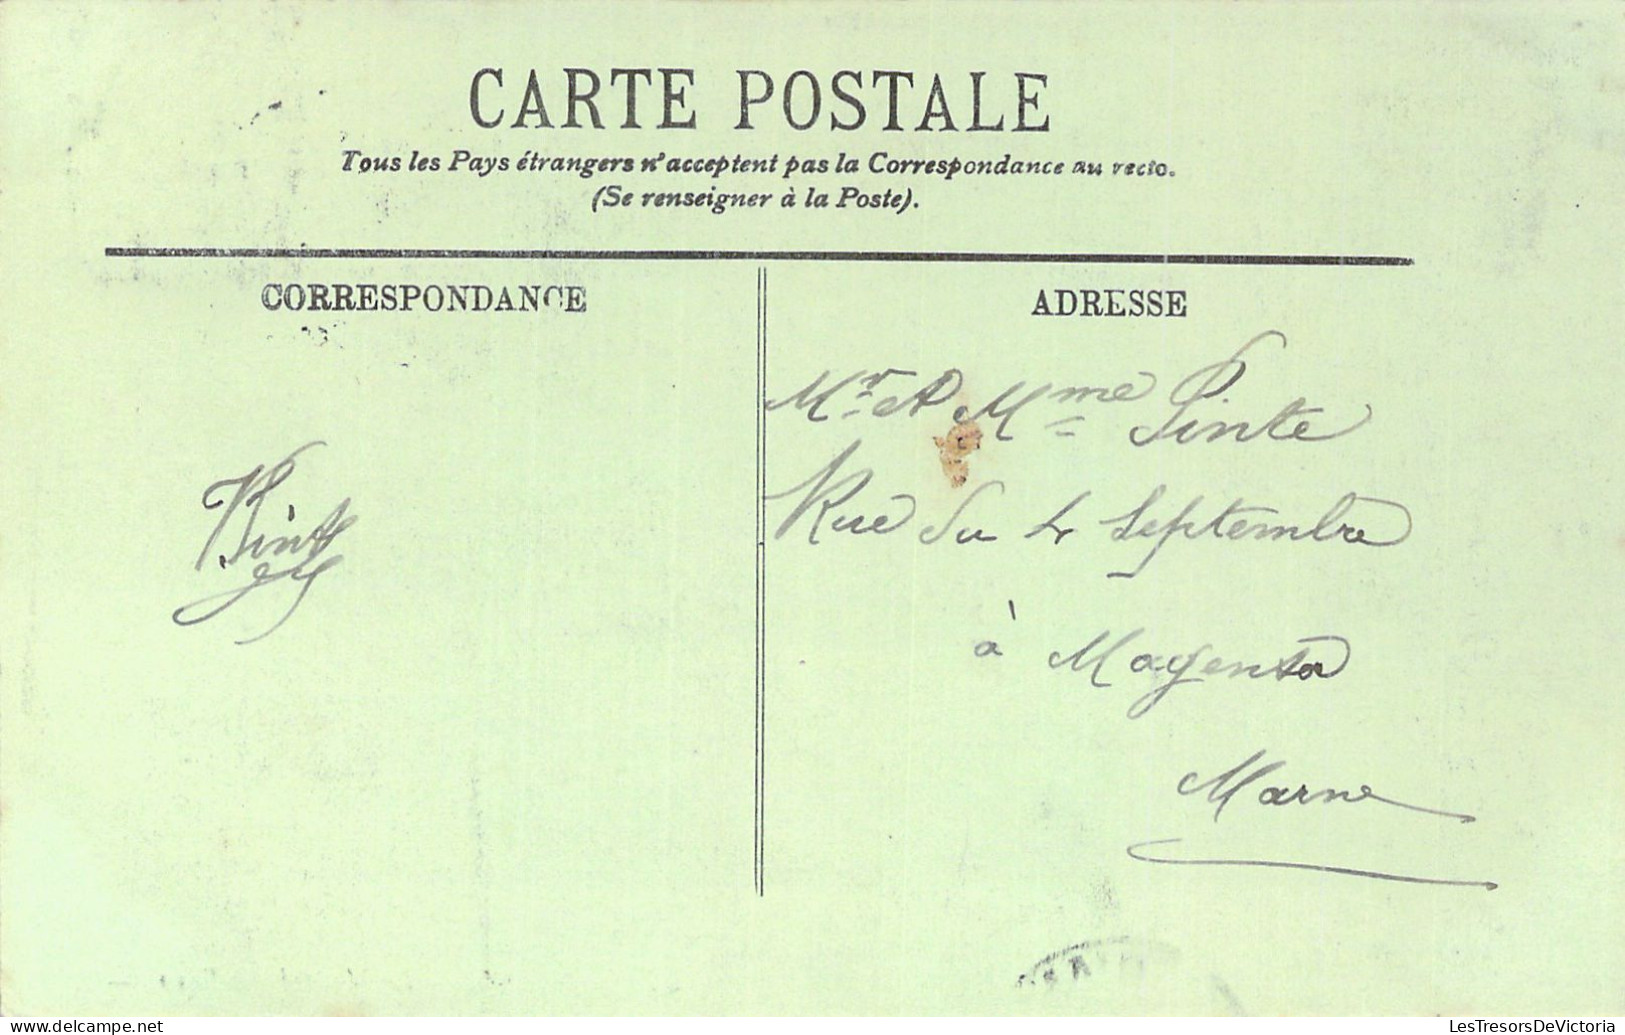 CARTE POSTALE
Tous les Pays étrangers n'acceptent pas la Correspondance au recto.
(Se renseigner à la Poste).
CORRESPONDANCE
ADRESSE
Mr et Mme Pinte
Rue du 4 Septembre
à Magenta
Marne
LesTresorsDeVictoria
www.delcampe.net